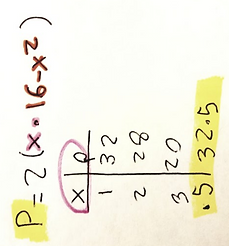 P = 2(x · 16-x2)
x P
1 32
2 28
3 20
.5 32.5